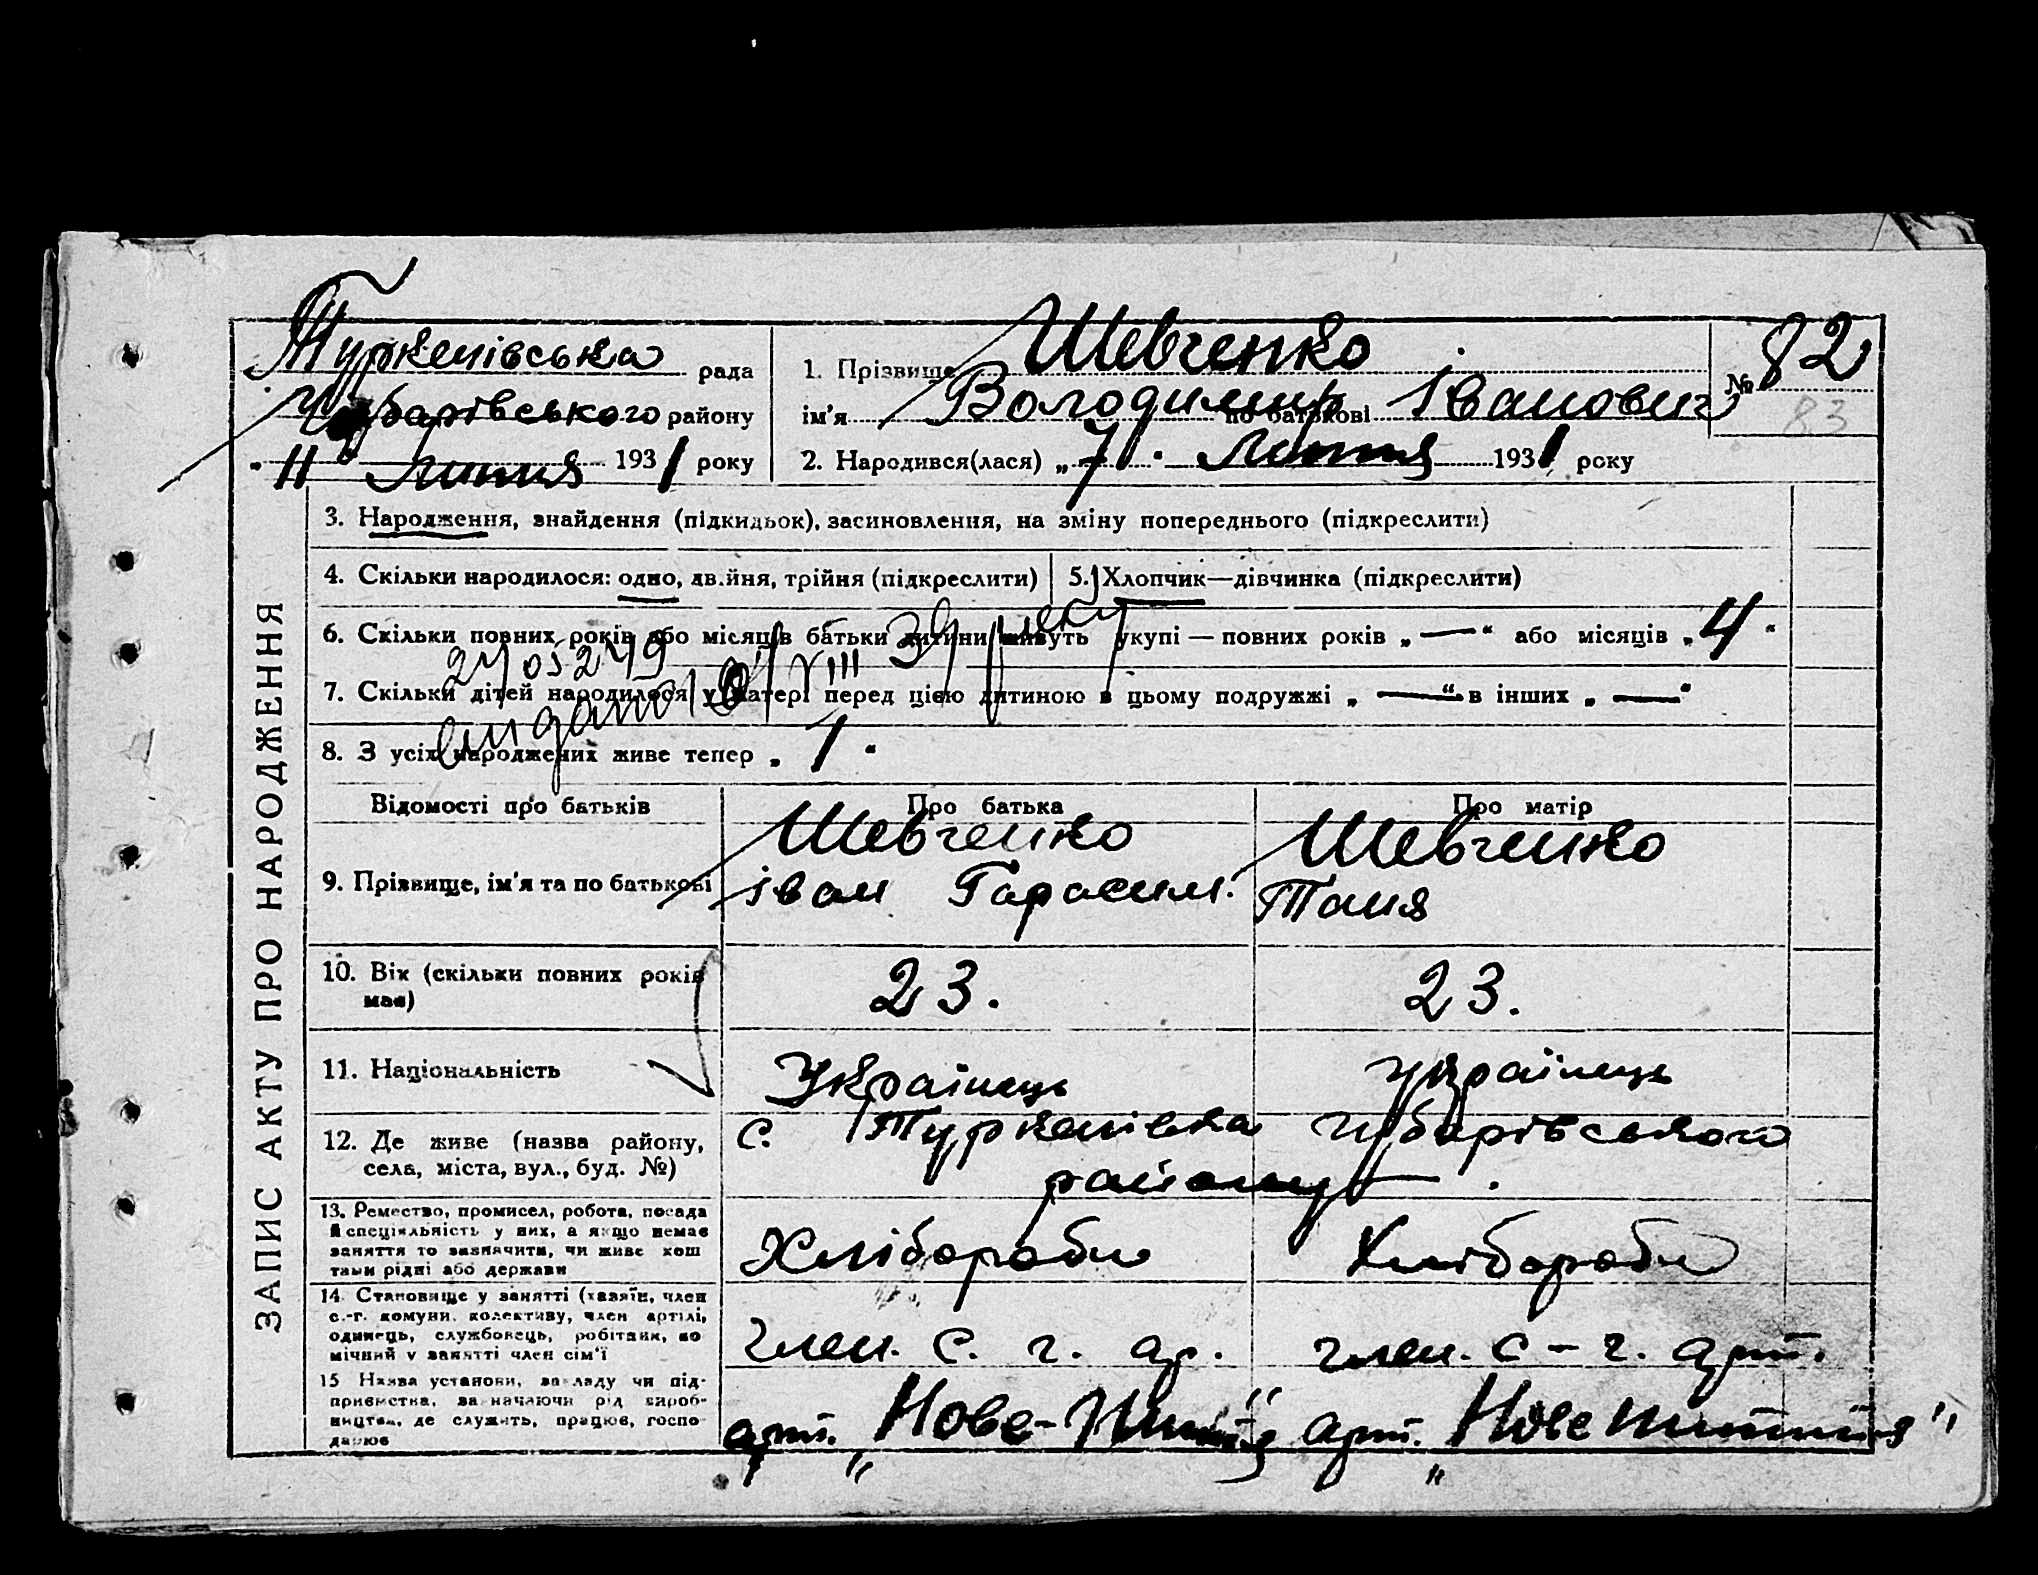 Туркенівська рада
Чубарівського району
"11" Липня 1931 року
1. Прізвище Шевченко
ім'я Володимир по батькові Іванович
2. Народився(лася) „7" Липня 1931 року
№ 82
83
ЗАПИС АКТУ ПРО НАРОДЖЕННЯ
3. Народження, знайдення (підкидьок), засиновлення, на зміну попереднього (підкреслити)
4. Скільки народилося: одно, двійня, трійня (підкреслити)
5. Хлопчик—дівчинка (підкреслити)
6. Скільки повних років або місяців батьки дитини живуть укупі — повних років „—" або місяців „4"
7. Скільки дітей народилося у матері перед цією дитиною в цьому подружжі „—" в інших „—"
8. З усіх народжених живе тепер „1"
Відомості про батьків
Про батька
Про матір
9. Прізвище, ім'я та по батькові
Шевченко
Іван Гарасим.
Шевченко
Таня
10. Вік (скільки повних років
має)
23.
23.
11. Національність
Українець
Українець
12. Де живе (назва району,
села, міста, вул., буд. №)
с. Туркенівка Чубарівського
району — .
13. Ремество, промисел, робота, посада
й спеціяльність у них, а якщо немає
заняття то зазначити, чи живе кош
тами рідні або держави
Хлібороби
Хлібороби
14. Становище у занятті (хазяїн, член
с.-г. комуни, колективу, член артілі,
одинець, службовець, робітник, по
мічний у занятті член сім'ї
член. с. г. ар.
член. с-г. арт.
15 Назва установи, закладу чи під-
приємства, зазначаючи рід вироб-
ництва, де служить, працює, госпо-
дарює
арт. „Нове-Життя"
арт. „Нове життя"